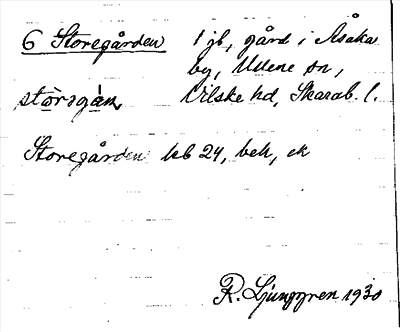 6 Storegården 1 jb, gård i Åsaka
by, Udene sn,
stòrəgàn, Vilske hd, Skarab. l.
Storegården kb 24, beh, ek
R. Ljunggren 1930